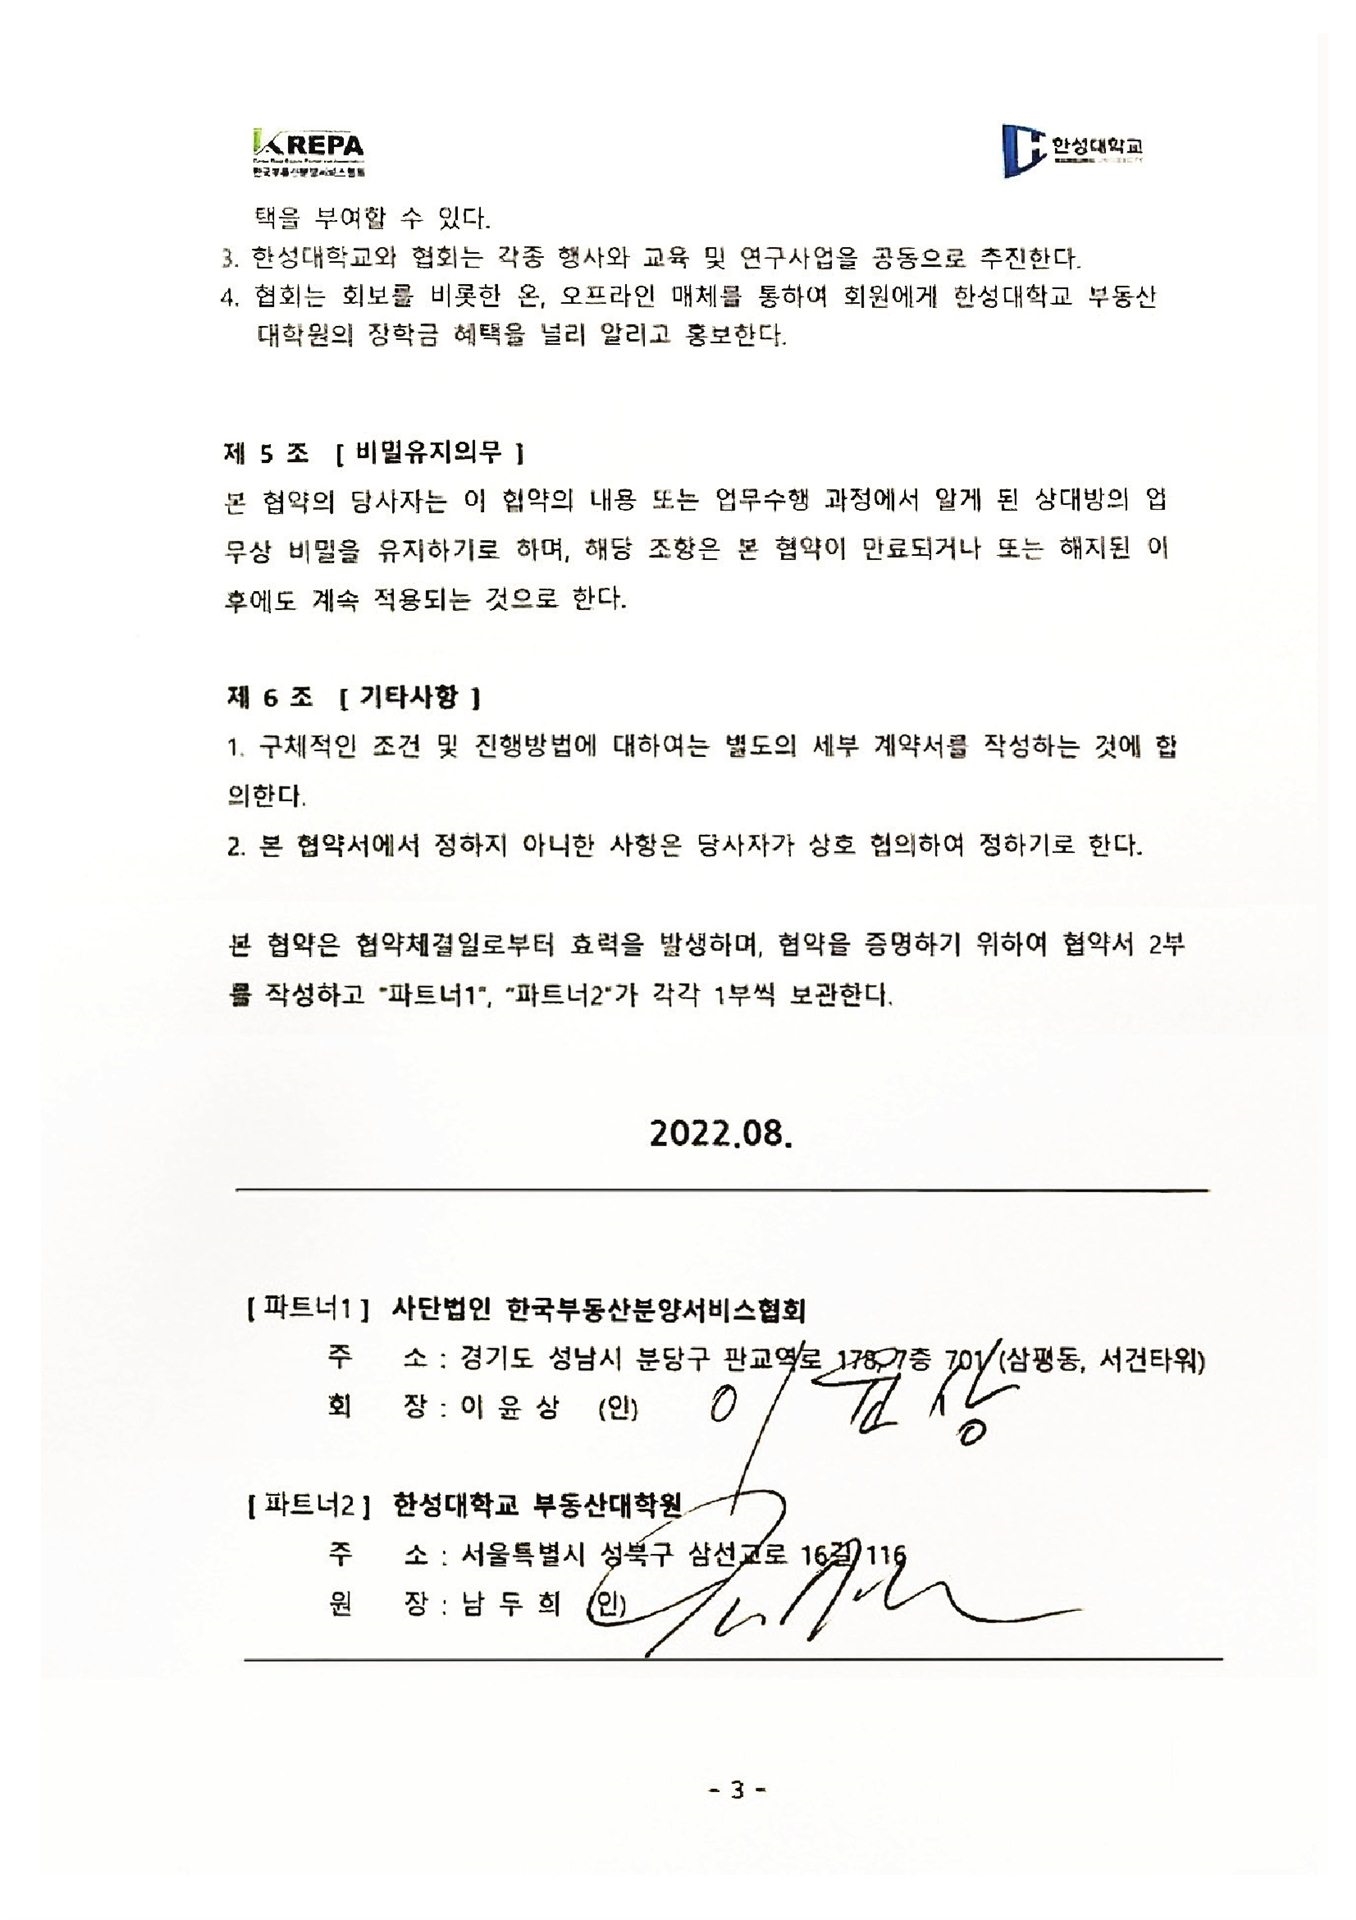 KREPA
한국부동산분양서비스협회
한성대학교
택을 부여할 수 있다.
3. 한성대학교와 협회는 각종 행사와 교육 및 연구사업을 공동으로 추진한다.
4. 협회는 회보를 비롯한 온, 오프라인 매체를 통하여 회원에게 한성대학교 부동산
대학원의 장학금 혜택을 널리 알리고 홍보한다.
제 5 조 [ 비밀유지의무 ]
본 협약의 당사자는 이 협약의 내용 또는 업무수행 과정에서 알게 된 상대방의 업
무상 비밀을 유지하기로 하며, 해당 조항은 본 협약이 만료되거나 또는 해지된 이
후에도 계속 적용되는 것으로 한다.
제 6 조 [ 기타사항 ]
1. 구체적인 조건 및 진행방법에 대하여는 별도의 세부 계약서를 작성하는 것에 합
의한다.
2. 본 협약서에서 정하지 아니한 사항은 당사자가 상호 협의하여 정하기로 한다.
본 협약은 협약체결일로부터 효력을 발생하며, 협약을 증명하기 위하여 협약서 2부
를 작성하고 "파트너1", "파트너2"가 각각 1부씩 보관한다.
2022.08.
[ 파트너1 ] 사단법인 한국부동산분양서비스협회
주 소 : 경기도 성남시 분당구 판교역로 178, 7층 701 (삼평동, 서건타워)
회 장 : 이 윤 상 (인) 이 윤 상
[ 파트너2 ] 한성대학교 부동산대학원
주 소 : 서울특별시 성북구 삼선교로 16길 116
원 장 : 남 두 희 (인)
- 3 -